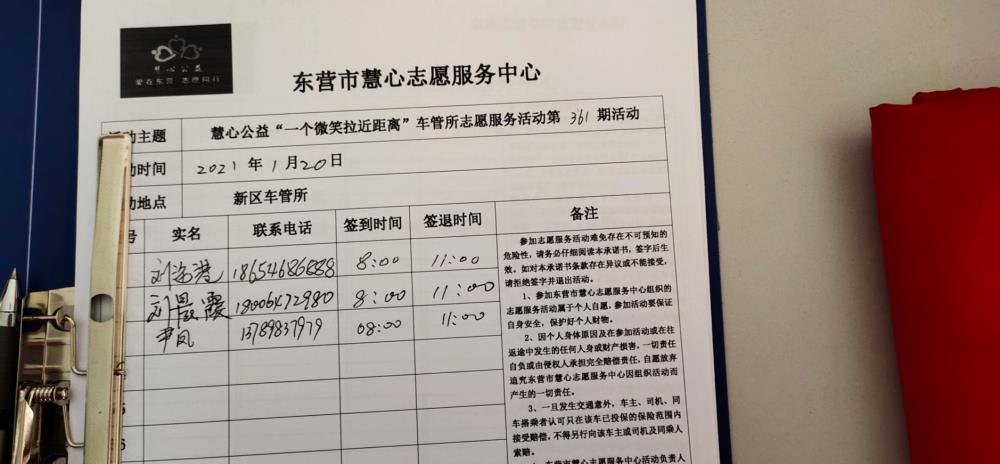 慧心公益
爱在东营 志愿同行
东营市慧心志愿服务中心
活动主题 慧心公益“一个微笑拉近距离”车管所志愿服务活动第 361 期活动
动时间 2021 年 1 月 20 日
动地点 新区车管所
号 实名 联系电话 签到时间 签退时间 备注
刘 18654686888 8:00 11:00
刘晨霞 18006472980 8:00 11:00
尹凤 13789837979 08:00 11:00
5
6
参加志愿服务活动难免存在不可预知的
危险性，请务必仔细阅读本承诺书，签字后生
效。如对本承诺书条款存在异议或不能接受，
请拒绝签字并退出活动。
1、参加东营市慧心志愿服务中心组织的
志愿服务活动属于个人自愿，参加活动要保证
自身安全，保护好个人财物。
2、因个人身体原因及在参加活动或在往
返途中发生的任何人身或财产损害，一切责任
自负或由侵权人承担完全赔偿责任，自愿放弃
追究东营市慧心志愿服务中心因组织活动而
产生的一切责任。
3、一旦发生交通意外，车主、司机、同
车搭乘者认可只在该车已投保的保险范围内
接受赔偿，不得另行向该车主或司机及同乘人
索赔。
东营市慧心志愿服务中心活动负责人